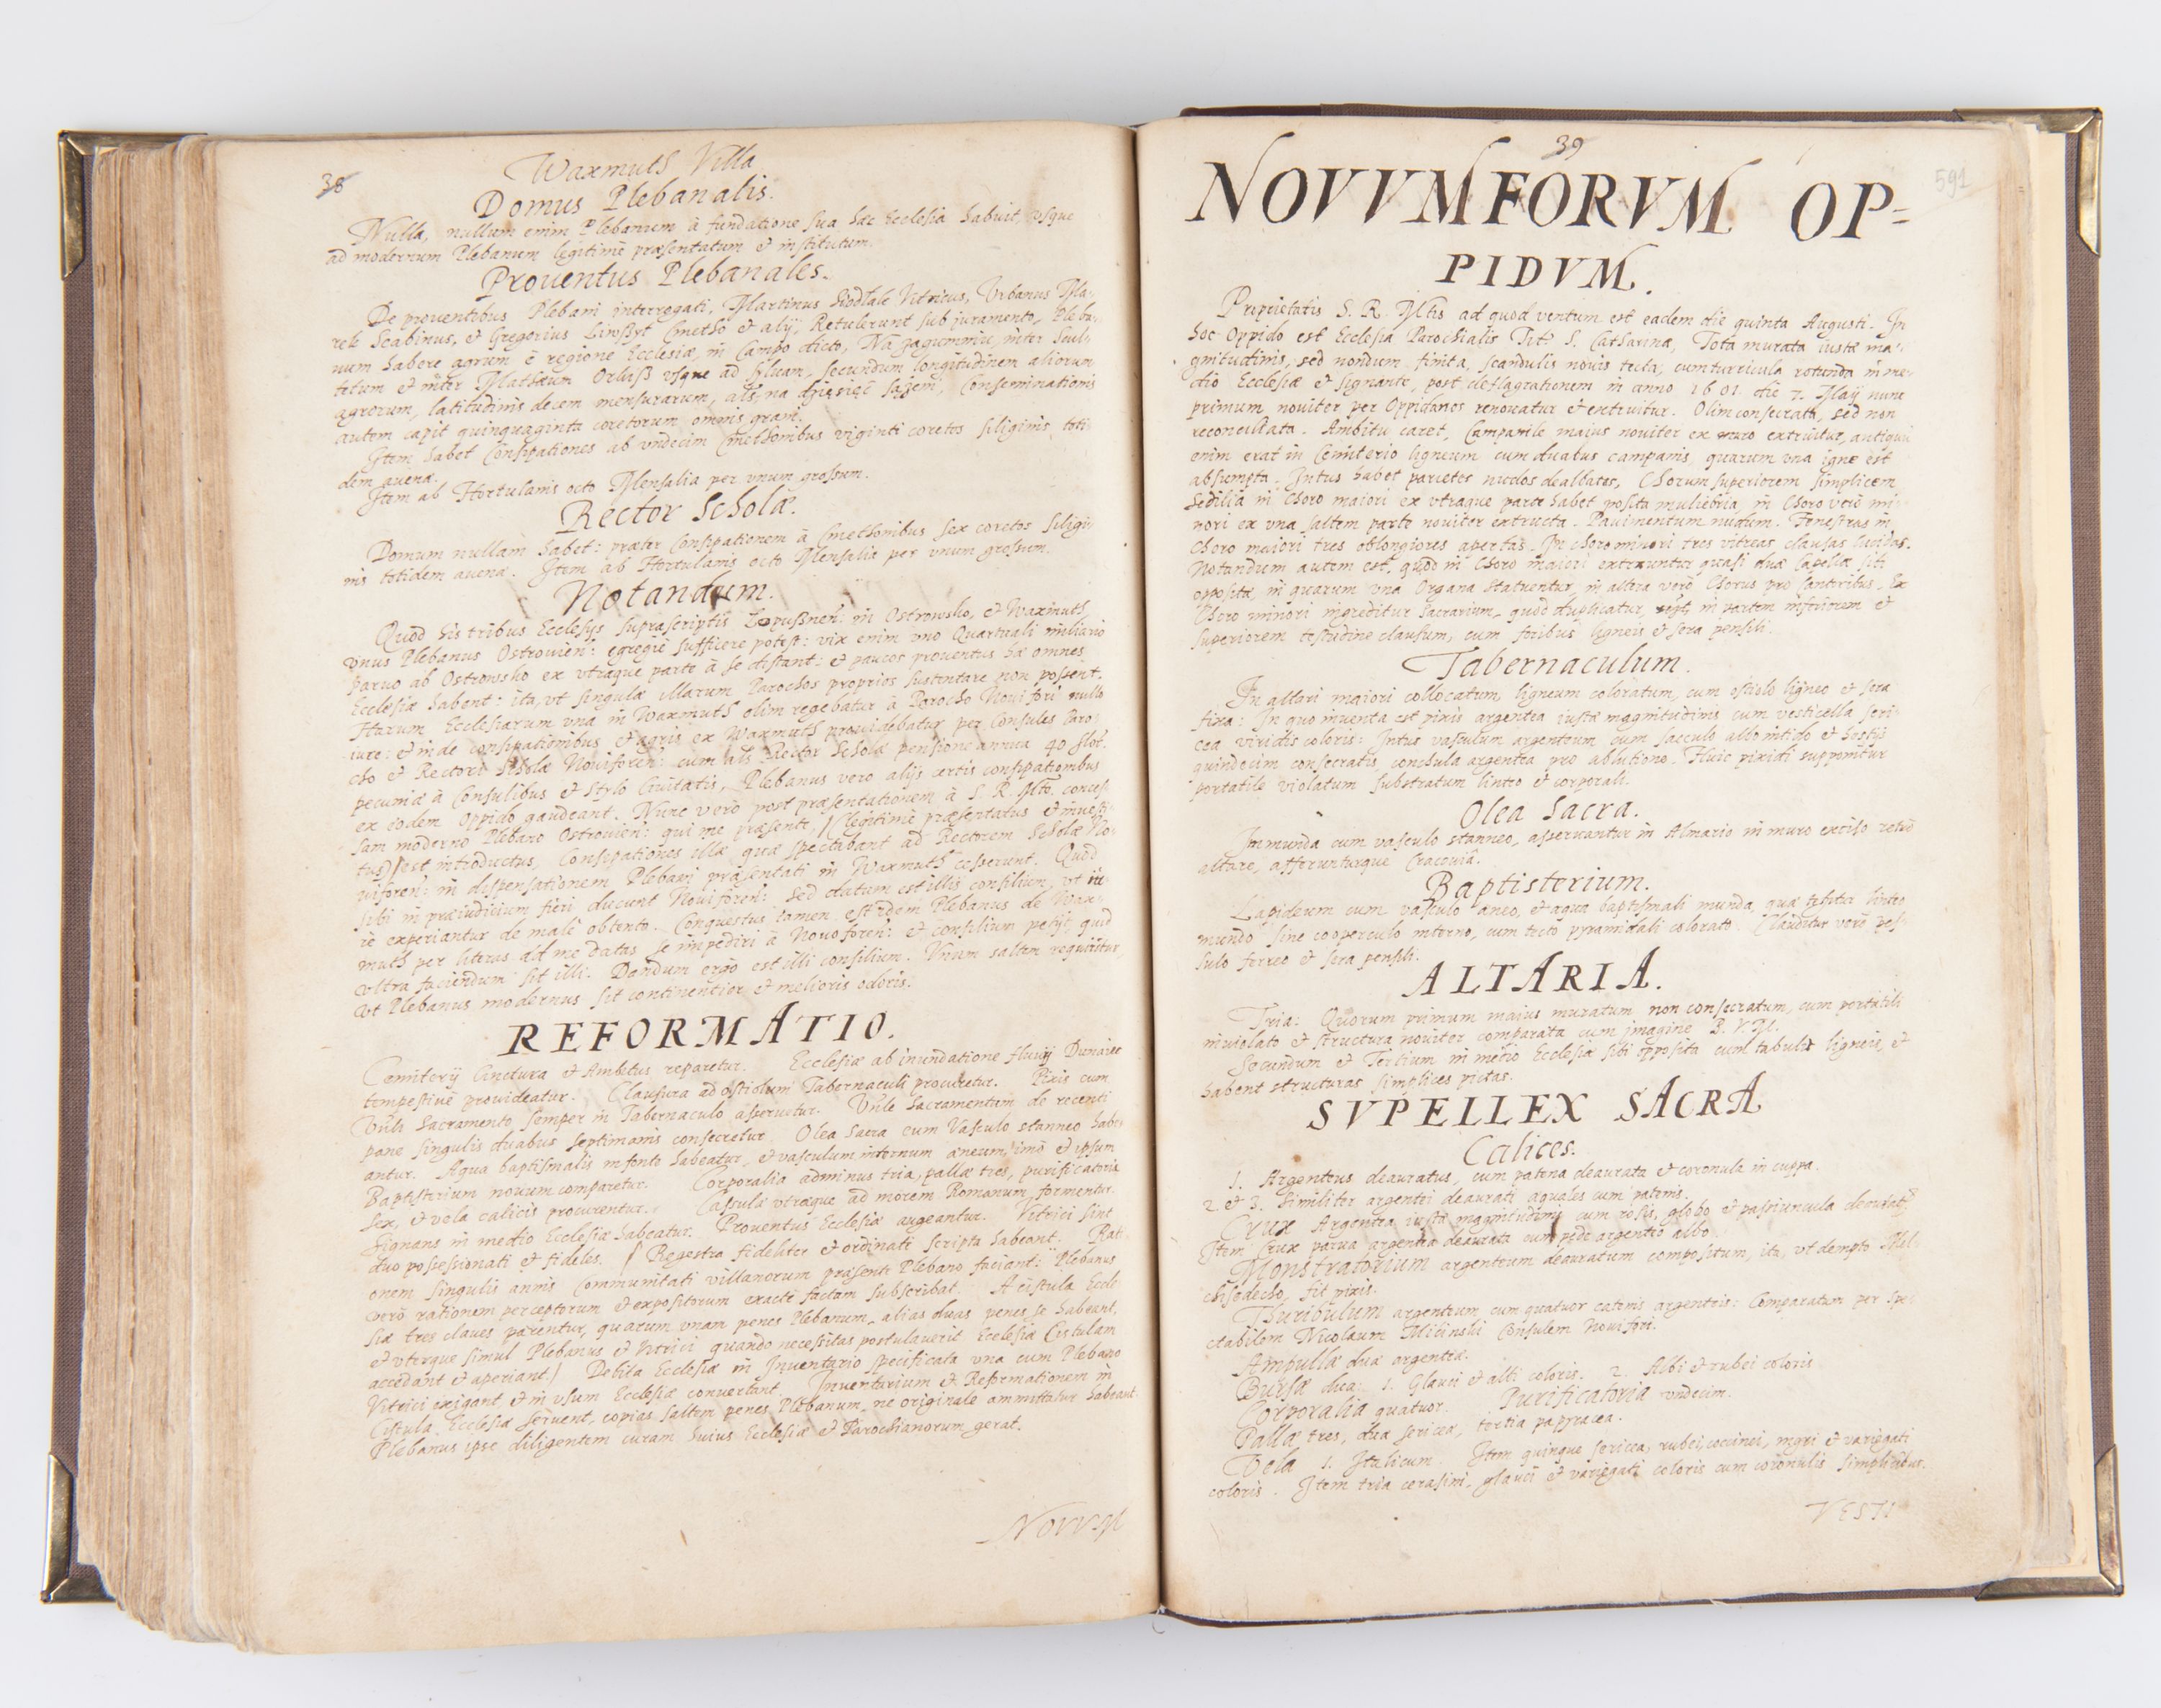 38
Waxmuth Villa
Domus Plebanalis.
Nulla, nullum enim Plebanum à fundatione sua hæc Ecclesia habuit, vsque
ad modernum Plebanum legitimè præsentatum et institutum.
Prouentus Plebanales.
De prouentibus Plebani interrogati, Martinus Vitricus, Vrbanus Ma-
rek Scabinus, et Gregorius Cmetho et alij, Retulerunt sub juramento, Pleba-
num habere agrum è regione Ecclesiæ, in Campo dicto, Na zagumniu, inter Scul-
tetum et inter Mathæum vsque ad syluam, secundum longitudinem aliorum
agrorum, latitudinis decem mensurarum, als. na dziesięć Consemina­tionis
autem capit quinquaginta coretorum omnis grani.
Item habet Consipationes ab vndecim Cmethonibus viginti coretos siliginis toti-
dem auenæ.
Item ab Hortulanis octo Mensalia per vnum grossum.
Rector Scholæ.
Domum nullam habet: præter Consipationem à Cmethonibus sex coretos siligi-
nis totidem auenæ. Item ab Hortulanis octo Mensalia per vnum grossum.
Notandum.
Quod his tribus Ecclesijs suprascriptis in Ostrowsko, et Waxmuth,
vnus Plebanus Ostrouien: egregiè sufficere potest: vix enim vno Quartuali miliario
paruo ab Ostrowsko ex vtraque parte à se distant: et paucos prouentus hæ omnes
Ecclesiæ habent: ita, vt singulæ illarum Parochos proprios sustentare non possent.
Harum Ecclesiarum vna in Waxmuth olim regebatur à Parocho Noui fori nullo
iure: et inde consipationibus et agris ex Waxmuth prouidebatur per Consules Paro-
cho et Rectori Scholæ Nouiforen: cum als Rector Scholæ pensione annua 40 flor.
pecuniæ à Consulibus et Ciuitatis, Plebanus vero alijs certis consipationibus
ex eodem Oppido gaudeant. Nunc verò post præsentationem à S. R. Mte. conces-
sam moderno Plebano Ostrouien: qui me præsente, (legitimè præsentatus et inuesti-
tus) est introductus, Consipationes illæ quæ spectabant ad Rectorem Scholæ No-
uiforen: in dispensationem Plebani præsentati in Waxmuth cesserunt. Quod
sibi in præiudicium fieri ducunt Nouiforen: sed datum est illis consilium, vt iu-
re experiantur de malè obtento. Conquestus tamen est idem Plebanus de Wax-
muth per literas ad me datas se impediri à Nouoforen: et consilium petijt, quid
vltra faciendum sit illi. Dandum ergo est illi consilium. Vnum saltem requiritur,
vt Plebanus modernus sit continentior et melioris odoris.
REFORMATIO.
Cemiterij Cinctura et Ambitus reparetur. Ecclesiæ ab inundatione fluuij Dunaiec
tempestiuè prouideatur. Clausura ad ostiolum Tabernaculi procuretur. Pixis cum
Vnli Sacramento semper in Tabernaculo asseruetur. Vnle Sacramentum de recenti
pane singulis duabus septimanis consecretur. Olea Sacra cum Vasculo stanneo habe-
antur. Aqua baptismalis in fonte habeatur, et vasculum internum æneum, imò et ipsum
Baptisterium nouum comparetur. Corporalia adminus tria, pallæ tres, purificatoria
sex, et vela calicis procurentur. Casulæ vtræque ad morem Romanum formentur.
Signans in medio Ecclesiæ habeatur. Prouentus Ecclesiæ augeantur. Vitrici sint
duo possessionati et fideles. Regestra fideliter et ordinatè scripta habeant. Rati-
onem singulis annis Communitati villanorum præsente Plebano faciant: Plebanus
verò rationem perceptorum et expositorum exactè factam subscribat. A cistula Eccle-
siæ tres claues parentur, quarum vnam penes Plebanum, alias duas penes se habeant,
et vterque simul Plebanus et Vitrici quando necessitas postulauerit Ecclesiæ Cistulam
accedant et aperiant. Debita Ecclesiæ in Inuentario specificata vna cum Plebano
Vitrici exigant, et in vsum Ecclesiæ conuertant. Inuentarium et Reformationem in
Cistula Ecclesiæ seruent, copias saltem penes Plebanum, ne originale ammittatur habeant.
Plebanus ipse diligentem curam huius Ecclesiæ et Parochianorum gerat.
NOVVM
39
591
NOVVMFORVM OP=
PIDVM.
Proprietatis S. R. Mtis ad quod ventum est eadem die quinta Augusti. In
hoc Oppido est Ecclesia Parochialis Tit. S. Catharinæ, Tota murata iustæ ma-
gnitudinis, sed nondum finita, scandulis nouis tecta, cum turricula rotunda in me-
dio Ecclesiæ et signante, post deflagrationem in anno 1601. die 7. Maij nunc
primum nouiter per Oppidanos renouatur et extruitur. Olim consecrata, sed non
reconciliata. Ambitu caret, Campanile maius nouiter ex muro extruitur, antiquũ
enim erat in Cemiterio ligneum cum duabus campanis, quarum vna igne est
absumpta. Intus habet parietes nudos dealbatos, Chorum superiorem simplicem
Sedilia in Choro maiori ex vtraque parte habet posita muliebria, in Choro verò mi-
nori ex vna saltem parte nouiter extructa. Pauimentum nudum. Fenestras in
Choro maiori tres oblongiores apertas. In choro minori tres vitreas clausas lucidas.
Notandum autem est, quòd in Choro maiori extruuntur quasi duæ Capellæ sibi
oppositæ, in quarum vna Organa statuentur, in altera verò Chorus pro Cantoribus. Ex
Choro minori ingreditur Sacrarium, quod duplicatur, in partem inferiorem et
superiorem testudine clausum, cum foribus ligneis et sera pensili.
Tabernaculum.
In altari maiori collocatum, ligneum coloratum, cum ostiolo ligneo et sera
fixa: In quo inuenta est pixis argentea iustæ magnitudinis cum vesticella seri-
cea viridis coloris: Intus vasculum argenteum cum sacculo albo nitido et hostijs
quindecim consecratis, conchula argentea pro ablutione. Huic pixidi supponitur
portatile violatum substratum linteo et corporali.
Olea Sacra.
Immunda cum vasculo stanneo, asseruantur in Almario in muro exciso retro
altare, afferunturque Cracouiâ.
Baptisterium.
Lapideum cum vasculo æneo, et aqua baptismali munda, quæ tegitur linteo
mundo sine cooperculo interno, cum tecto pyramidali colorato. Clauditur verò pes-
sulo ferreo et sera pensili.
ALTARIA.
Tria: Quorum primum maius muratum non consecratum, cum portatili
inuiolato et structura nouiter comparata cum imagine B. V. M.
Secundum et Tertium in medio Ecclesiæ sibi opposita cum tabulis ligneis, et
habent structuras simplices pictas.
SVPELLEX SACRA
Calices.
1. Argenteus deauratus, cum patena deaurata et coronula in cuppa.
2 et 3. Similiter argentei deaurati æquales cum patenis.
Crux Argentea iustæ magnitudinis cum rosis, globo et passiuncula deauratis.
Item Crux parua argentea deaurata cum pede argenteo albo.
Monstratorium argenteum deauratum compositum, ita, vt dempto Mel-
chisedecho, fit pixis.
Thuribulum argenteum, cum quatuor catenis argenteis: Comparatum per Spe-
ctabilem Nicolaum Micinski Consulem Nouifori.
Ampullæ duæ argenteæ.
Bursæ duæ: 1. Glauci et albi coloris. 2. Albi et rubei coloris
Corporalia quatuor. Purificatoria vndecim.
Pallæ tres, duæ sericeæ, tertia papyracea.
Vela 1. Italicum. Item quinque sericea, rubei, coccinei, nigri et variegati
coloris. Item tria cerasini, glauci et variegati coloris cum coronulis simplicibus.
VESTI